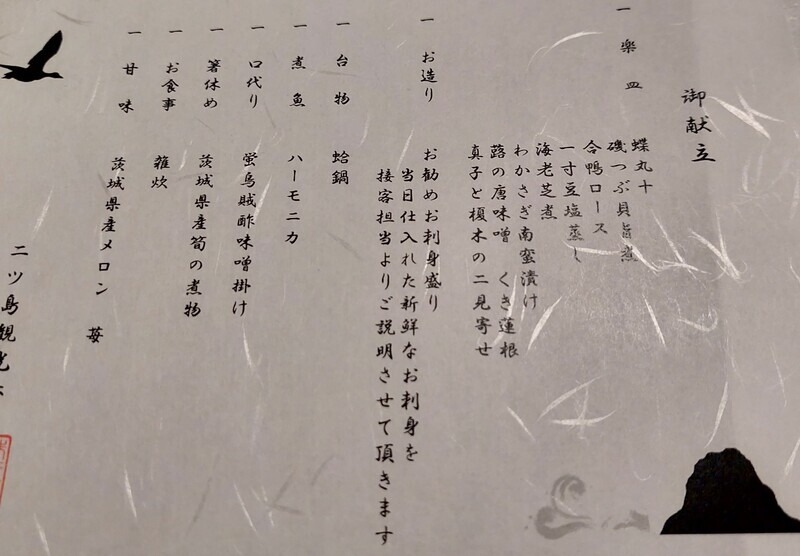 御献立
一 楽皿
蝶丸十
磯つぶ貝旨煮
合鴨ロース
一寸豆塩蒸し
海老芝煮
わかさぎ南蛮漬け
蕗の唐味噌 くき蓮根
真子と榎木の二見寄せ
一 お造り お勧めお刺身盛り
当日仕入れた新鮮なお刺身を
接客担当よりご説明させて頂きます
一 台物 蛤鍋
一 煮魚 ハーモニカ
一 口代り 蛍烏賊酢味噌掛け
一 箸休め 茨城県産筍の煮物
一 お食事 雑炊
一 甘味 茨城県産メロン 苺
二ツ島観光